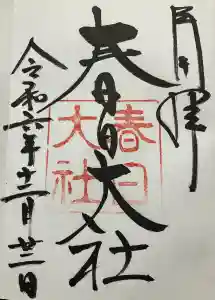 春日大社
令和六年十二月廿三日
春日
大社